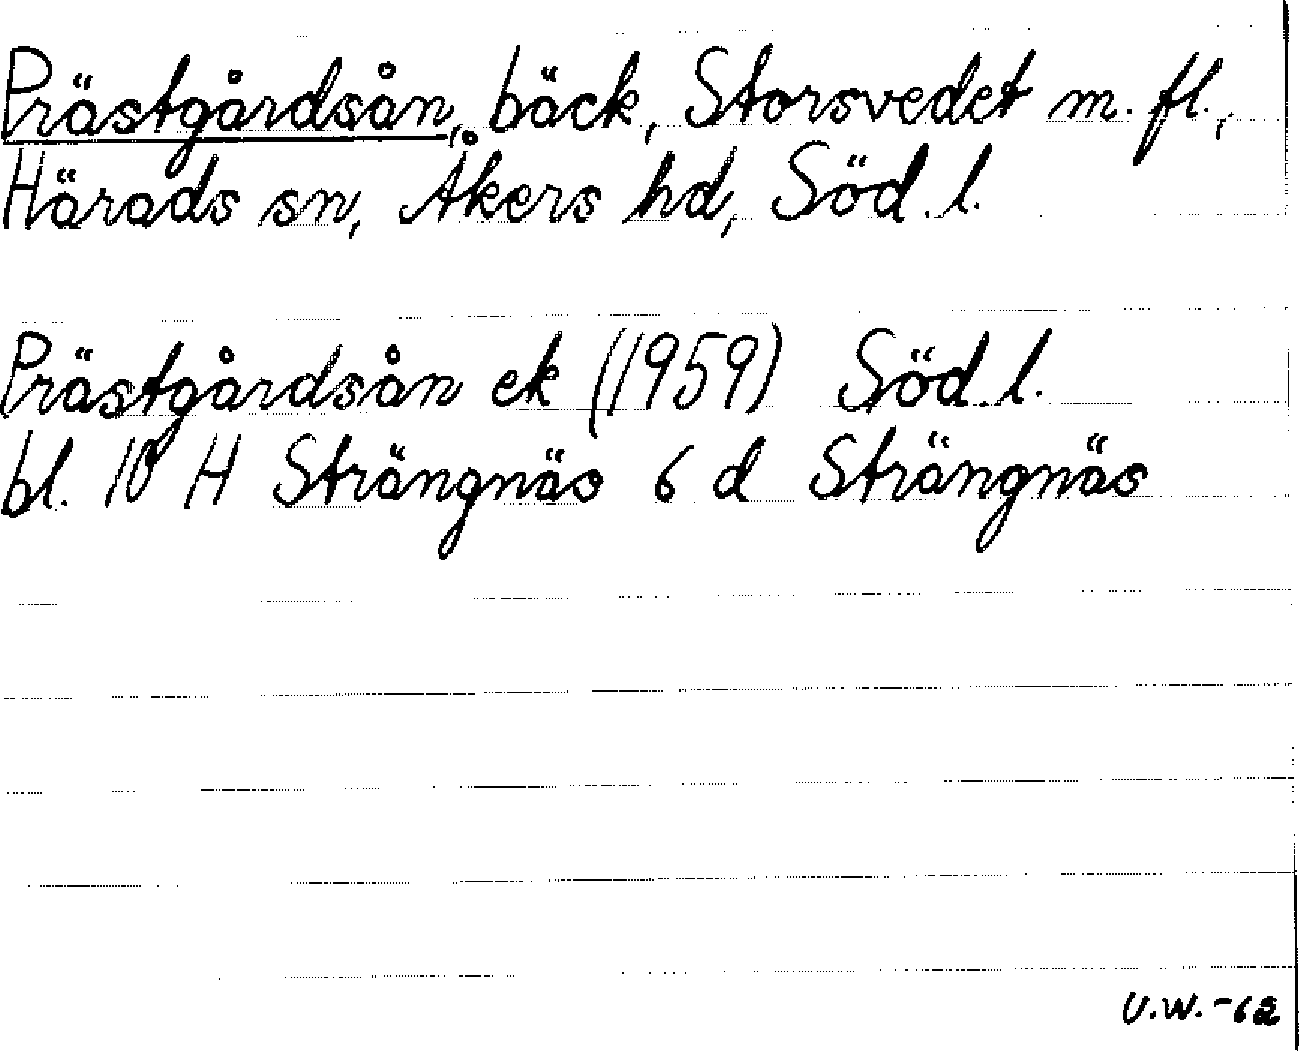 Prästgårdsån, bäck, Storsvedet m. fl.,
Härads sn, Åkers hd, Söd. l.
Prästgårdsån ek (1959) Söd. l.
bl. 10 H Strängnäs 6 d Strängnäs
U.W. -62